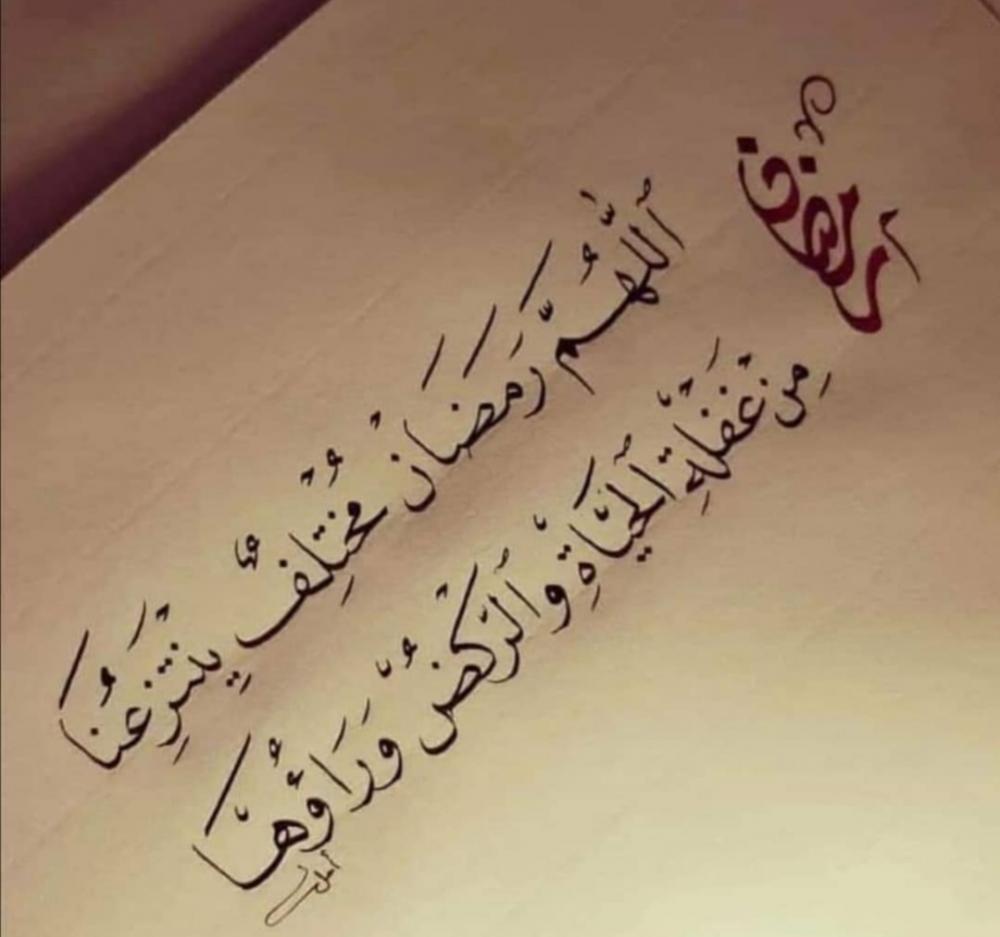 رمضان
اللَّهُمَّ رَمَضَانْ مُخْتِلِفٌ يِنْتَزِعُنَا
مِنْ غَفْلَةِ الْحَيَاةِ وَالرَّكْضُ وَرَاؤُهَا